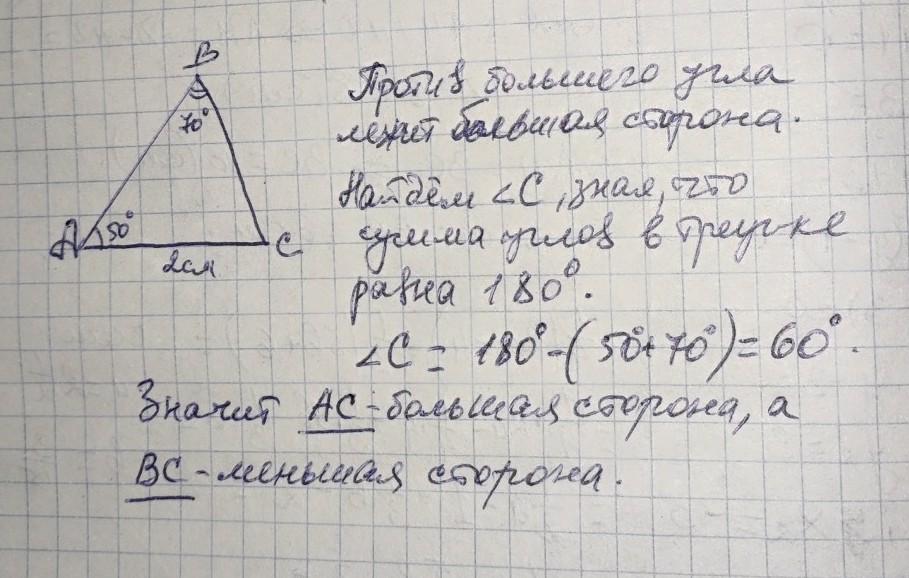 B
70°
A 50° C
2см
Против большего угла
лежит большая сторона.
Найдём ∠C, зная, что
сумма углов в треуг-ке
равна 180°.
∠C = 180° - (50°+70°) = 60°.
Значит AC - большая сторона, а
BC - меньшая сторона.